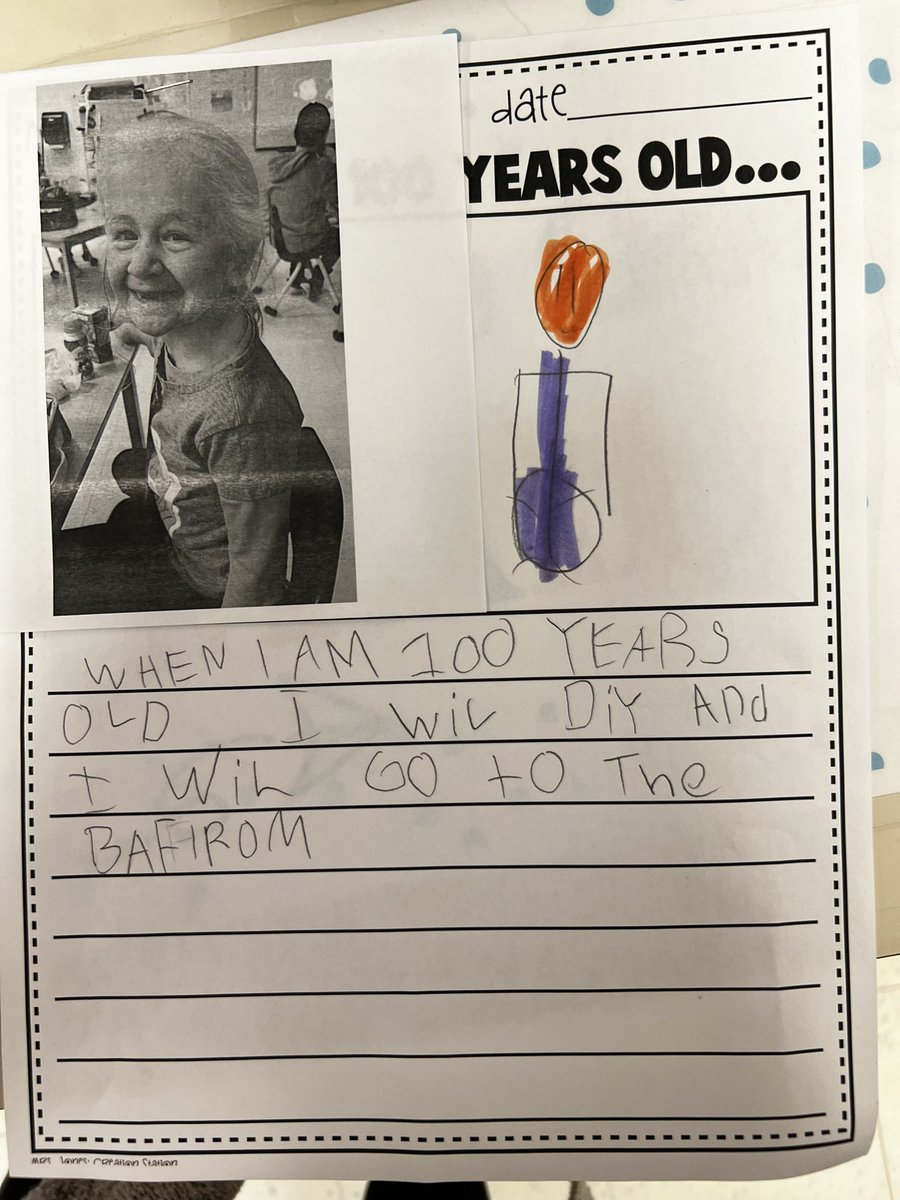 date
YEARS OLD...
WHEN I AM 100 YEARS
OLD I WIL DiY AND
I WiL GO tO The
BAFIROM
MRS. Jones' Creation Station